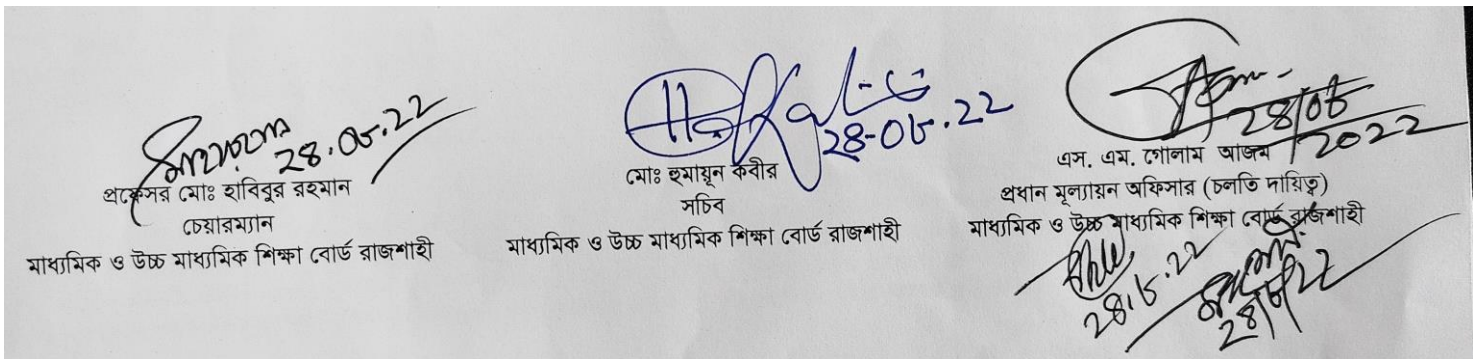 28.06.22
প্রফেসর মোঃ হাবিবুর রহমান
চেয়ারম্যান
মাধ্যমিক ও উচ্চ মাধ্যমিক শিক্ষা বোর্ড রাজশাহী
28-06.22
মোঃ হুমায়ূন কবীর
সচিব
মাধ্যমিক ও উচ্চ মাধ্যমিক শিক্ষা বোর্ড রাজশাহী
28/06
2022
এস. এম. গোলাম আজম
প্রধান মূল্যায়ন অফিসার (চলতি দায়িত্ব)
মাধ্যমিক ও উচ্চ মাধ্যমিক শিক্ষা বোর্ড রাজশাহী